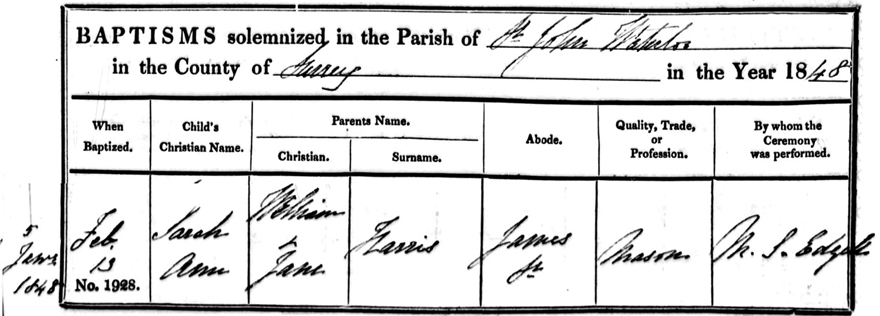 BAPTISMS solemnized in the Parish of St John Waterloo
in the County of Surrey in the Year 1848
When Baptized.
Child's Christian Name.
Parents Name.
Christian.
Surname.
Abode.
Quality, Trade, or Profession.
By whom the Ceremony was performed.
5
Jany
1848
Feb.
13
No. 1928.
Sarah
Ann
William
&
Jane
Harris
James
St
Mason